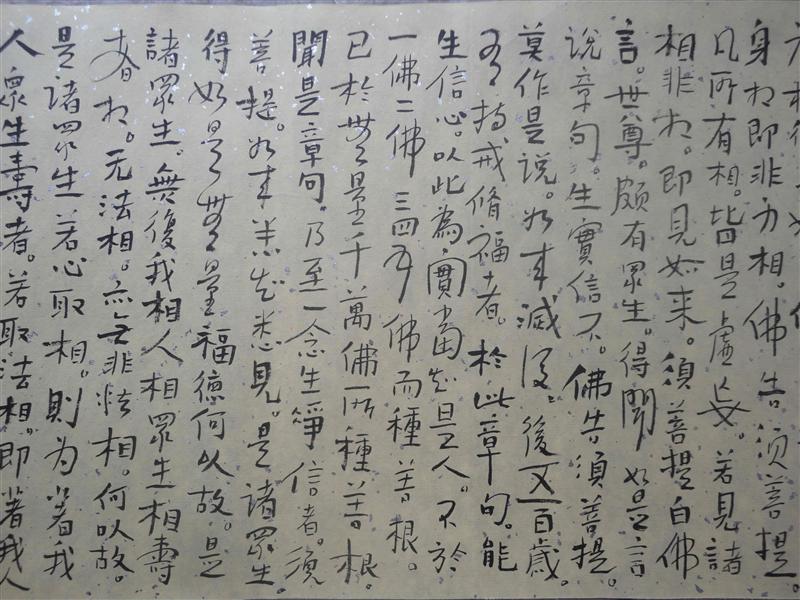 身相即非身相。佛告须菩提。
凡所有相。皆是虛妄。若見諸
相非相。即見如来。須菩提白佛
言。世尊。頗有眾生。得聞如是言
说章句。生實信不。佛告須菩提。
莫作是说。如来滅後。後五百歲。
有持戒脩福者。於此章句。能
生信心。以此為實當知是人。不於
一佛二佛三四五佛而種善根。
已於無量千萬佛所種善根。
聞是章句。乃至一念生淨信者。須
菩提。如来悉知悉見。是諸眾生。
得如是無量福德何以故。是
諸眾生。無復我相人相眾生相壽
者相。无法相。亦无非法相。何以故。
是诸眾生若心取相。則为著我
人眾生壽者。若取法相。即著我人